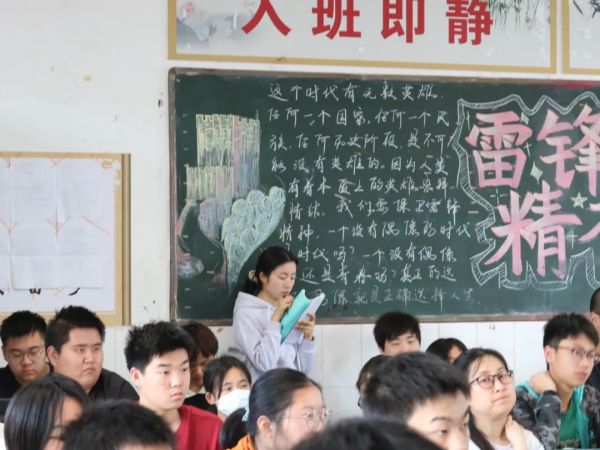 入班即静
这个时代有无数英雄。
任何一个国家,任何一个民
族,在所历史阶段,是不可
能没有英雄的。因为人类
有着本
上的英雄崇拜
情结。我们要保卫雷锋
精神,一个没有偶像的时代
时代吗?一个没有偶像
还是青春吗?真正的选
像就是正确选择人生
雷锋
精